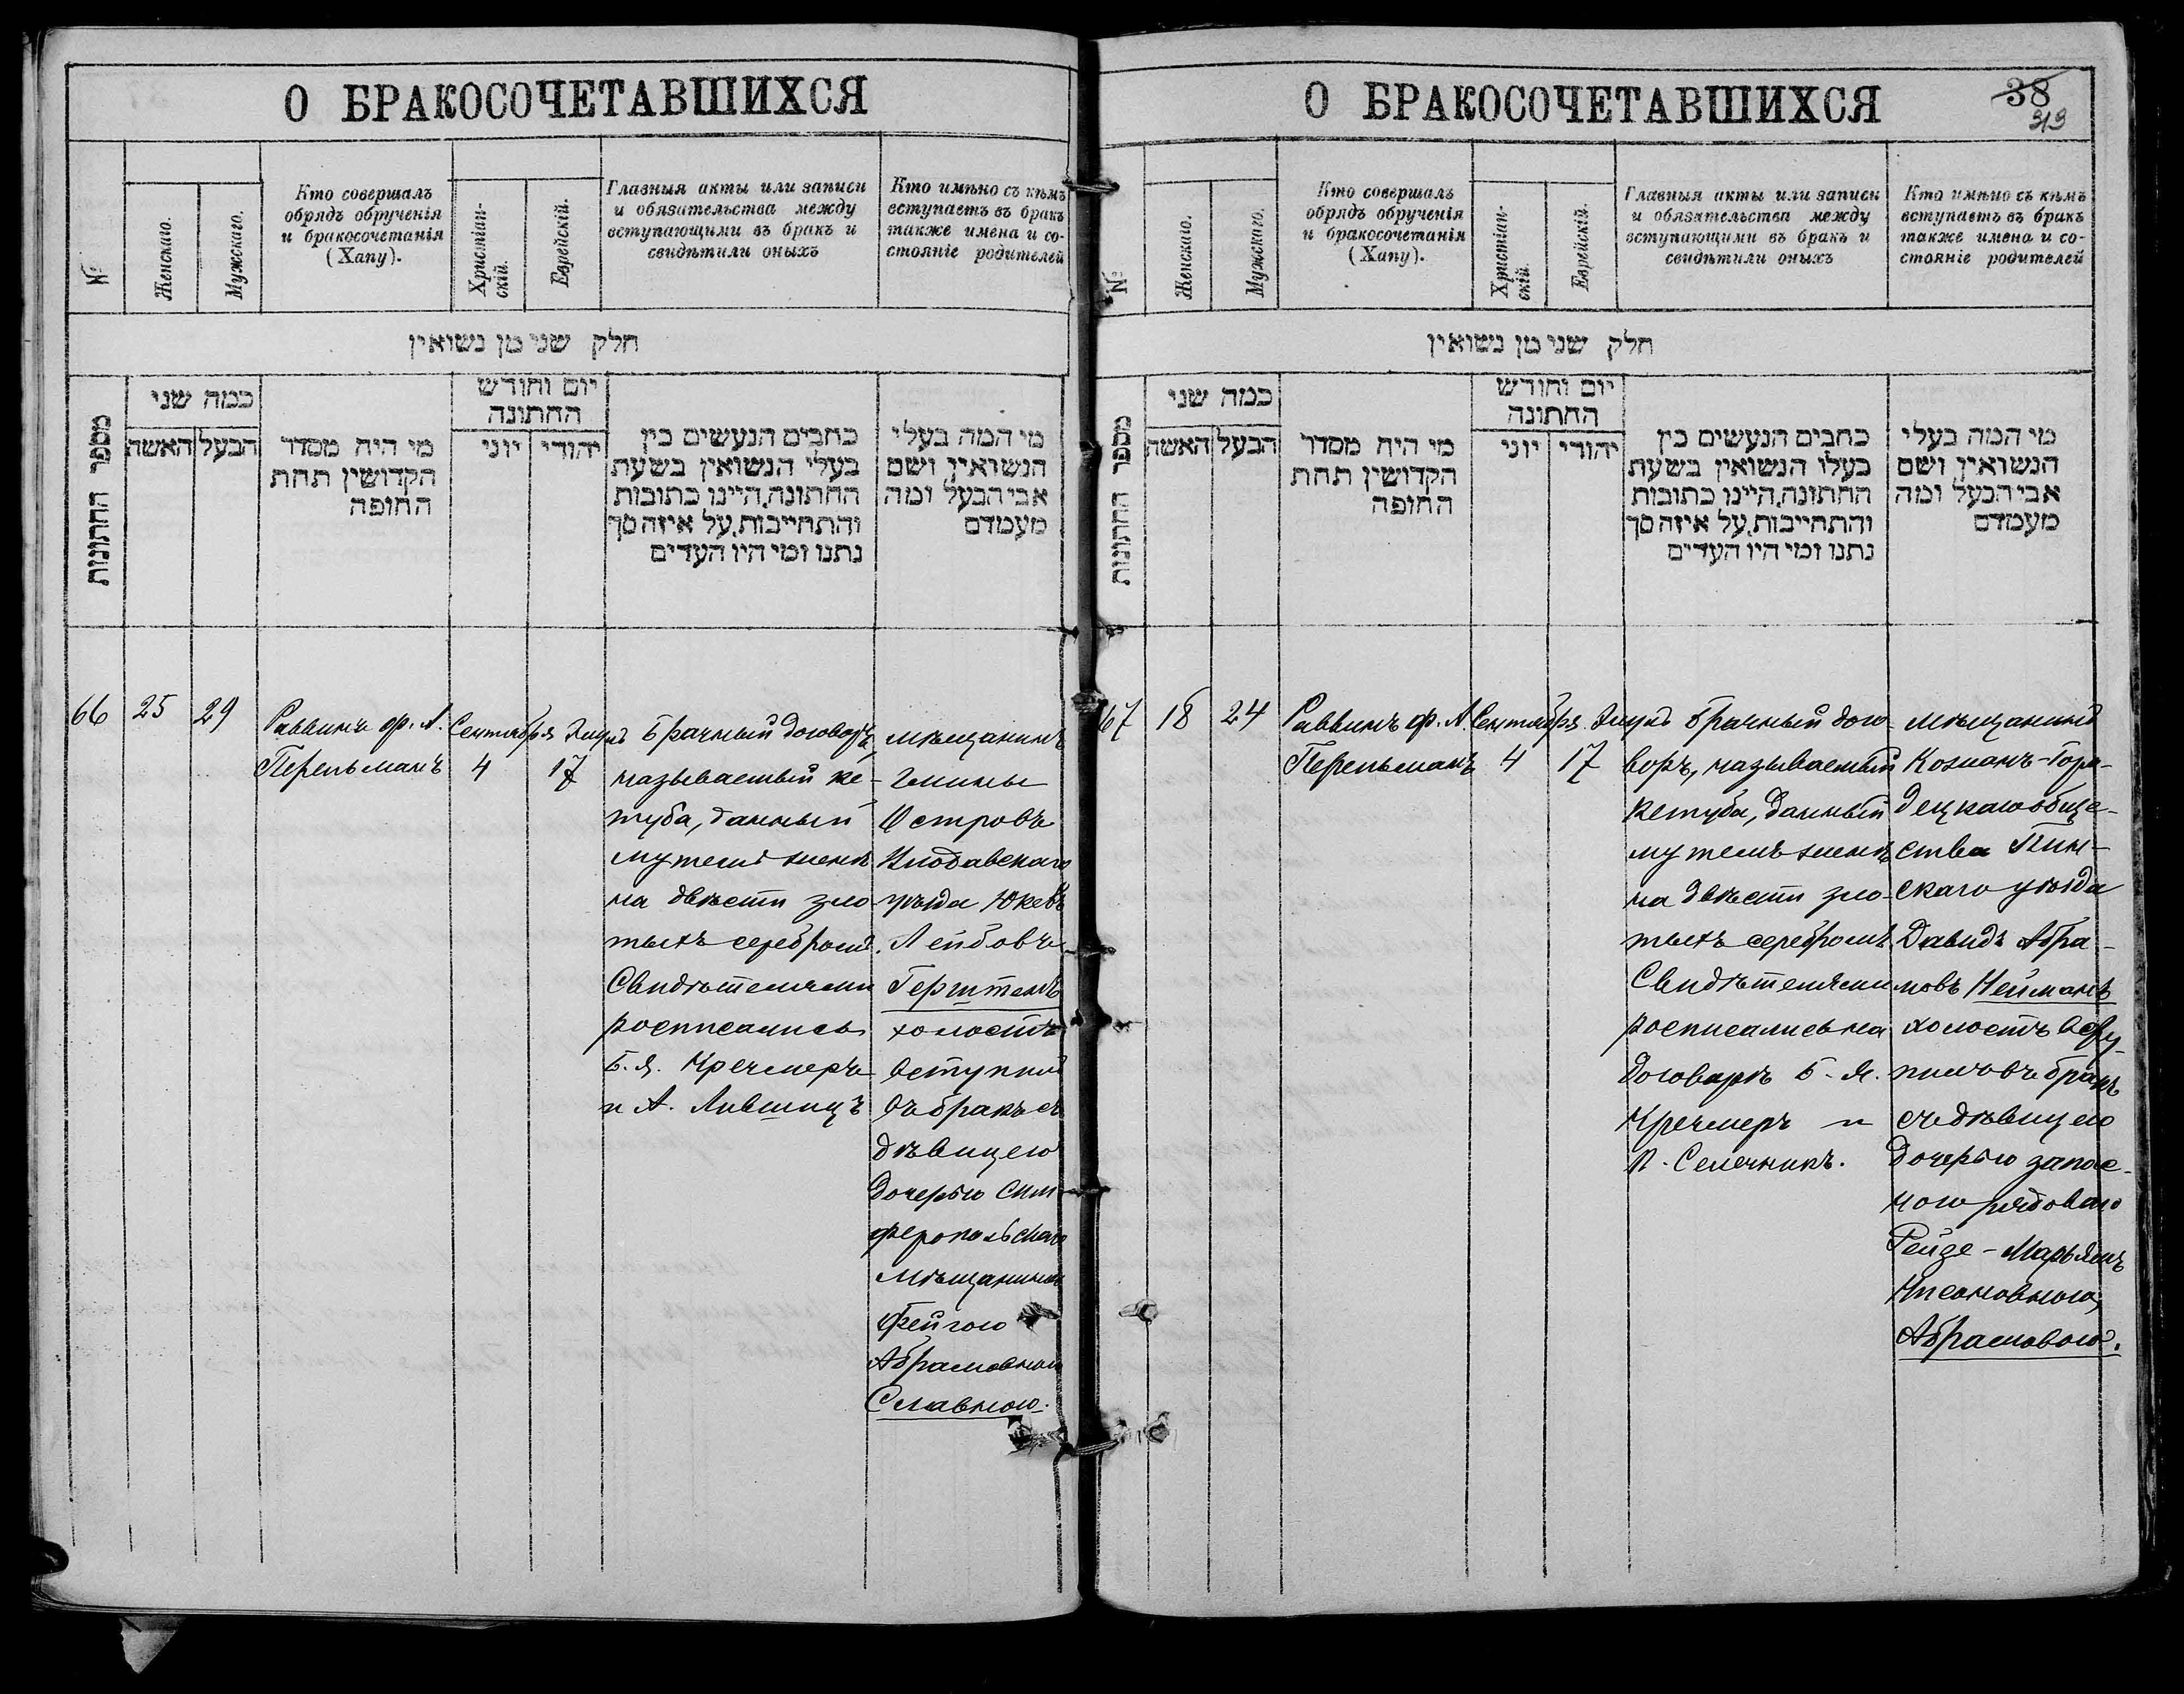 О БРАКОСОЧЕТАВШИХСЯ
№
Женскаго.
Мужскаго.
Кто совершалъ
обрядъ обрученія
и бракосочетанія
(Хапу).
Христіан-
скій.
Еврейскій.
Главныя акты или записи
и обязательства между
вступающими въ бракъ и
свидѣтили оныхъ
Кто имѣно съ кѣмъ
вступаетъ въ бракъ
также имена и со-
стояніе родителей
חלק שני מן נשואין
מספר החתונות
כמה שני
האשה
הבעל
מי היה מסדר
הקדושין תחת
החופה
יום וחודש
החתונה
יוני
יהודי
כתבים הנעשים בין
בעלי הנשואין בשעת
החתונה, היינו כתובות
והתחייבות, על איזה סך
נתנו ומי היו העדים
מי המה בעלי
הנשואין ושם
אבי הבעל ומה
מעמדם
66
25
29
Раввинъ ф. А.
Перельманъ
Сентября
4
Элулъ
17
Брачный договоръ,
называемый ке-
туба, данный
мужемъ женѣ
на двѣсти зло-
тыхъ серебромъ.
Свидѣтелями
росписались
Б. Я. Кречмеръ
и А. Лившицъ
мѣщанинъ
гмины
Островъ
Влодавскаго
уѣзда Юкевъ
Лейбовъ
Герштенъ
холостъ
вступилъ
въ бракъ съ
дѣвицею
дочерью Сим-
феропольскаго
мѣщанина
Фейгою
Абрамовною
Славною.
О БРАКОСОЧЕТАВШИХСЯ
38
№
Женскаго.
Мужскаго.
Кто совершалъ
обрядъ обрученія
и бракосочетанія
(Хапу).
Христіан-
скій.
Еврейскій.
Главныя акты или записи
и обязательства между
вступающими въ бракъ и
свидѣтили оныхъ
Кто имѣно съ кѣмъ
вступаетъ въ бракъ
также имена и со-
стояніе родителей
חלק שני מן נשואין
מספר החתונות
כמה שני
האשה
הבעל
מי היה מסדר
הקדושין תחת
החופה
יום וחודש
החתונה
יוני
יהודי
כתבים הנעשים בין
בעלי הנשואין בשעת
החתונה, היינו כתובות
והתחייבות, על איזה סך
נתנו ומי היו העדים
מי המה בעלי
הנשואין ושם
אבי הבעל ומה
מעמדם
67
18
24
Раввинъ ф. А.
Перельманъ
Сентября
4
Элулъ
17
Брачный дого-
воръ, называемый
кетуба, данный
мужемъ женѣ
на двѣсти зло-
тыхъ серебромъ
Свидѣтелями
росписались на
договорѣ Б. Я.
Кречмеръ и
П. Селечникъ.
мѣщанинъ
Кожанъ-Горо-
децкаго обще-
ства Пин-
скаго уѣзда
Давидъ Абра-
мовъ Нейманъ
холостъ всту-
пилъ въ бракъ
съ дѣвицею
дочерью запас-
ного рядоваго
Рейзе-Марьямъ
Нисоновною
Абрамовою.